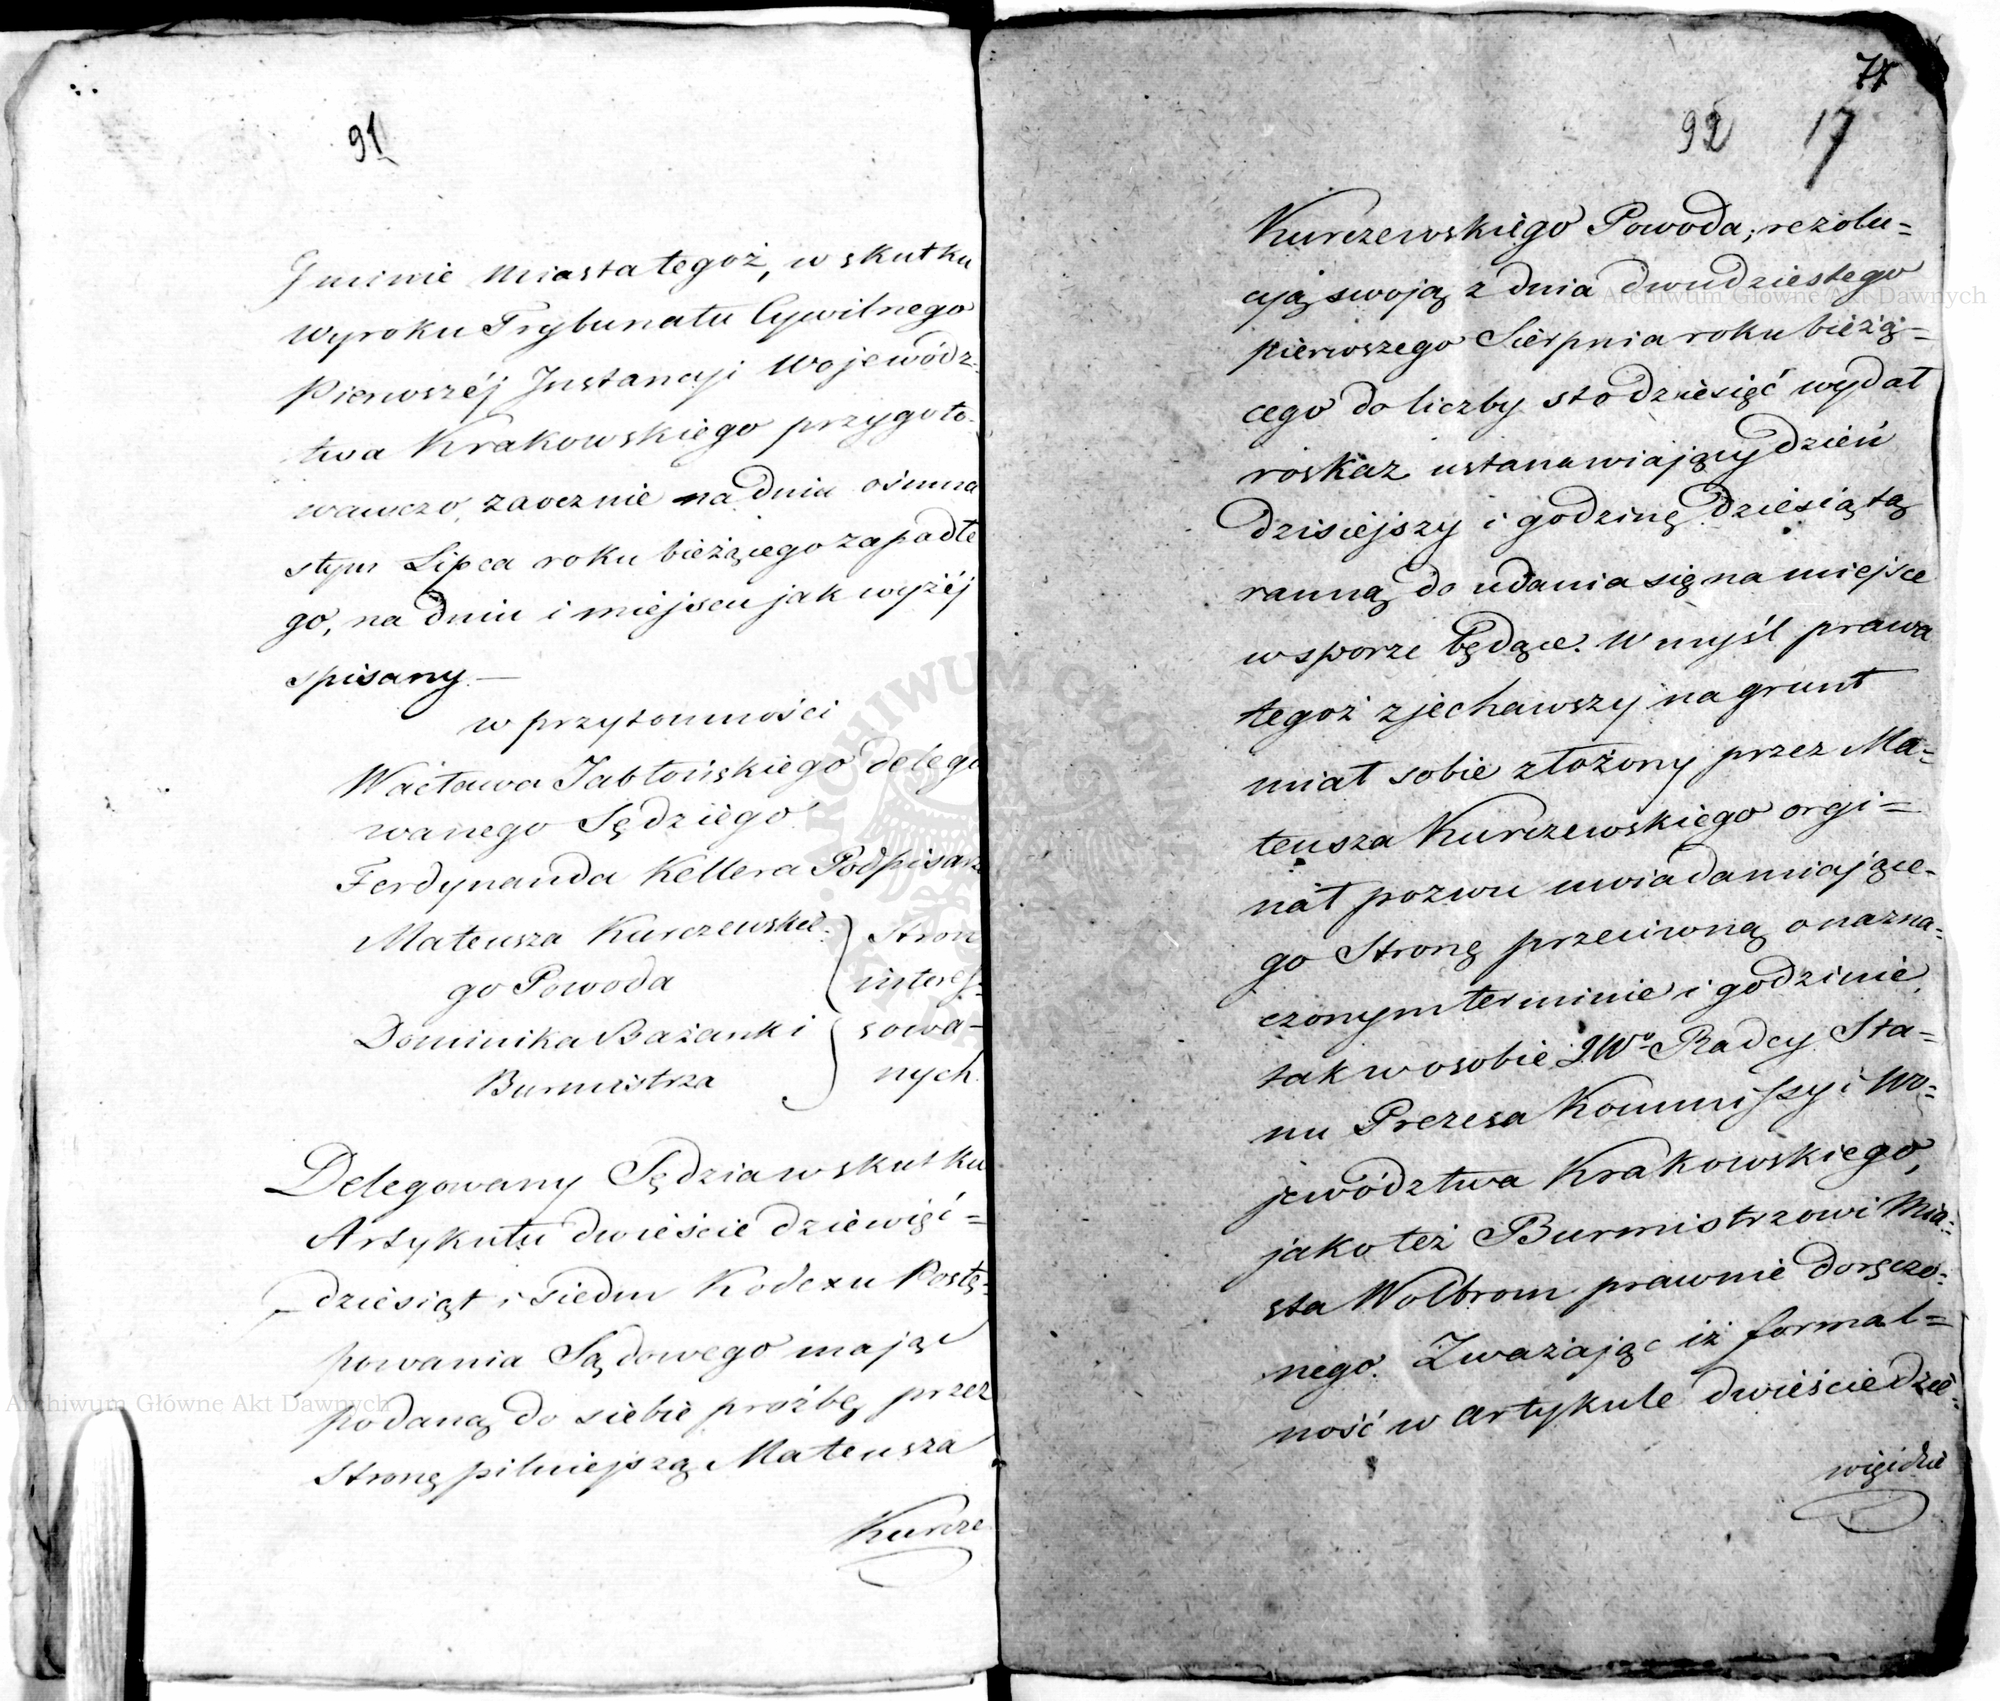 91
Gminie Miasta tegoż, w skutku
Wyroku Trybunału Cywilnego
Pierwszéj Instancyi Wojewódz-
twa Krakowskiego przygoto-
wawczo, zaocznie na dniu ośmna
stym Lipca roku bieżącego zapadłe
go, na dniu i miejscu jak wyżéj
spisany —
w przytomności
Wacława Jabłońskiego delego
wanego Sędziego
Ferdynanda Kellera Podpisarz
Mateusza Kurczewskie-
go Powoda
Dominika Bażanki
Burmistrza
Stron
interes-
sowa-
nych.
Delegowany Sędzia w skutku
Artykułu dwieście dziewięć=
dziesiąt i siedm Kodexu Postę-
powania Sądowego mając
podaną do siebie proźbę przez
Stronę pilniejszą Mateusza
Kurcze
74
92 17
Kurczewskiego Powoda; rezolu=
cyą swoją z dnia dwudziestego
pierwszego Sierpnia roku bieżą=
cego do liczby sto dziesięć wydał
roskaz ustanawiający dzień
dzisiejszy i godzinę dziesiątą
ranną do udania się na miejsce
w sporze będące. W myśl prawa
tegoż zjechawszy na grunt
miał sobie złożony przez Ma=
teusza Kurczewskiego orgi=
nał pozwu uwiadamiające-
go Stronę przeciwną o nazna-
czonym terminie i godzinie,
tak w osobie JWo Radcy Sta=
nu Prezesa Kommissyi Wo=
jewództwa Krakowskiego,
jako też Burmistrzowi Mia=
sta Wolbrom prawnie doręczo-
nego. Zważając iż formal=
ność w artykule dwieście dzie-
więćdzie
Archiwum Główne Akt Dawnych
Archiwum Główne Akt Dawnych